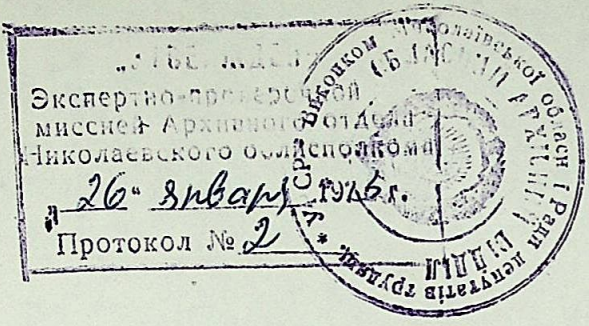 „УТВЕРЖДЕНО"
Экспертно-проверочной
миссией Архивного отдела
Николаевского облисполкома
„26" января 1976 г.
Протокол № 2
* УРСР Виконком Миколаївської обласної Ради депутатів трудящ.
ОБЛАСНИЙ АРХІВНИЙ ВІДДІЛ